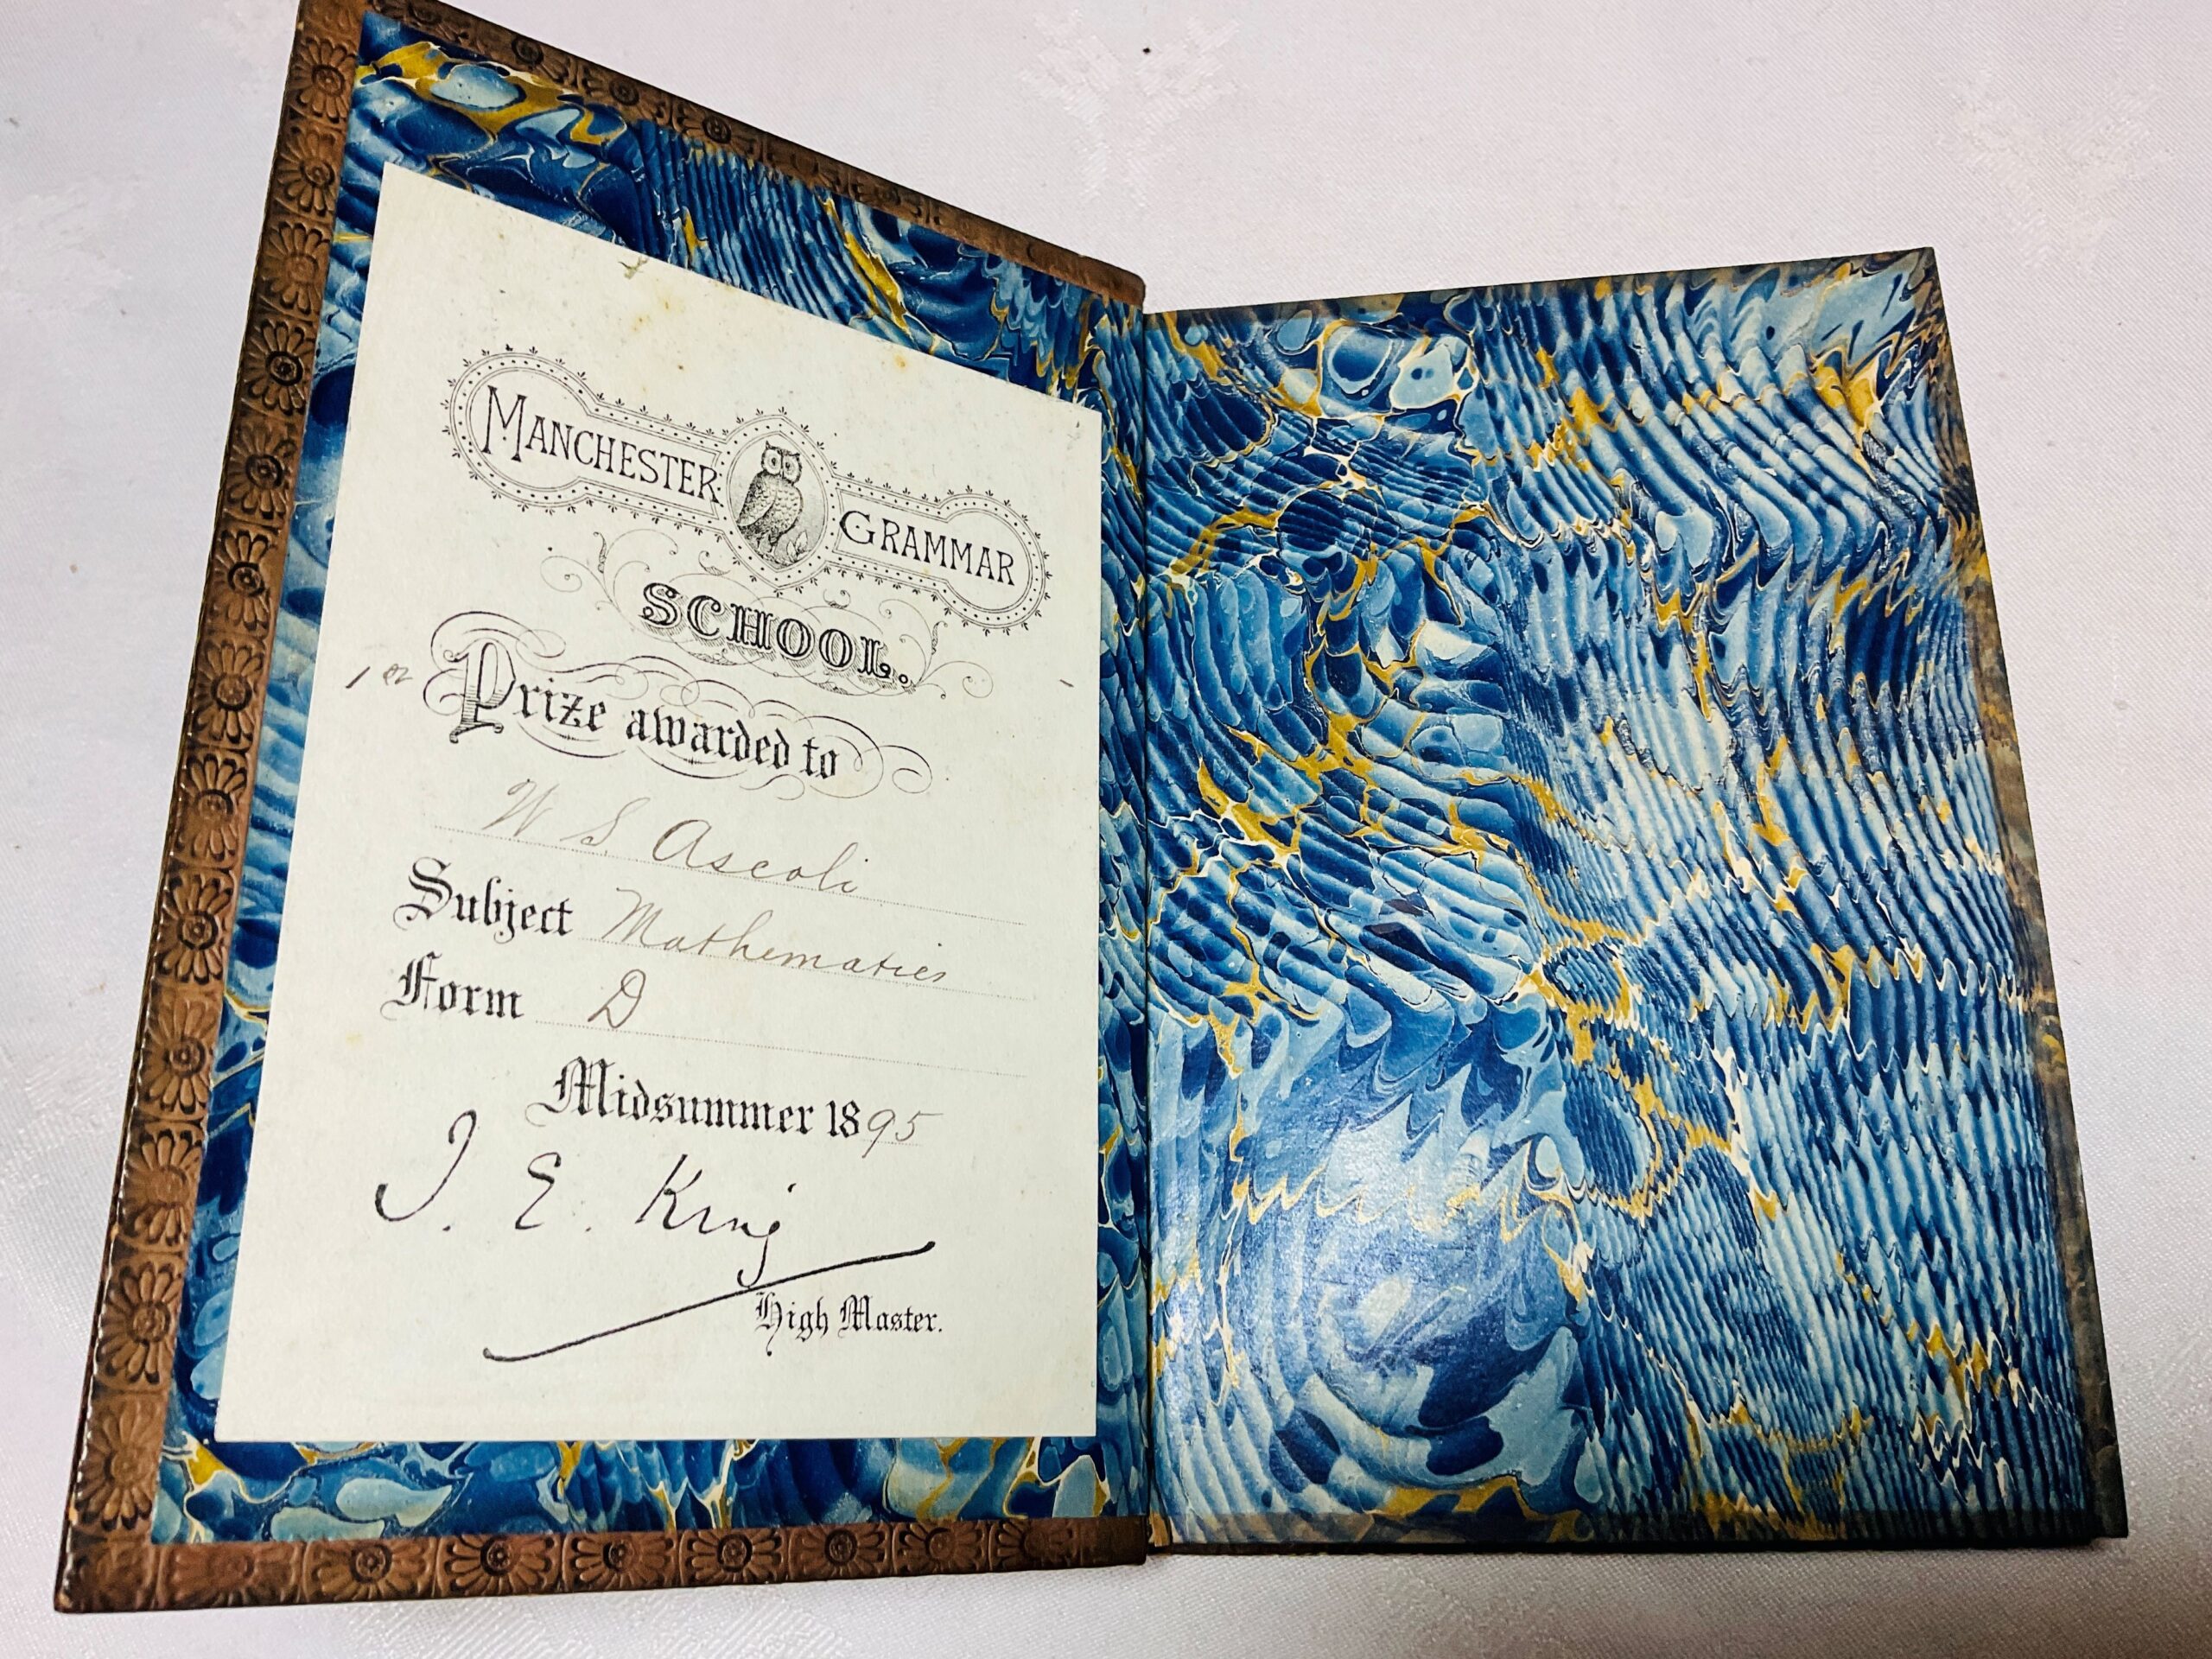 MANCHESTER GRAMMAR
SCHOOL.
Prize awarded to
W S Ascoli
Subject Mathematics
Form D
Midsummer 1895
J. E. King
High Master.